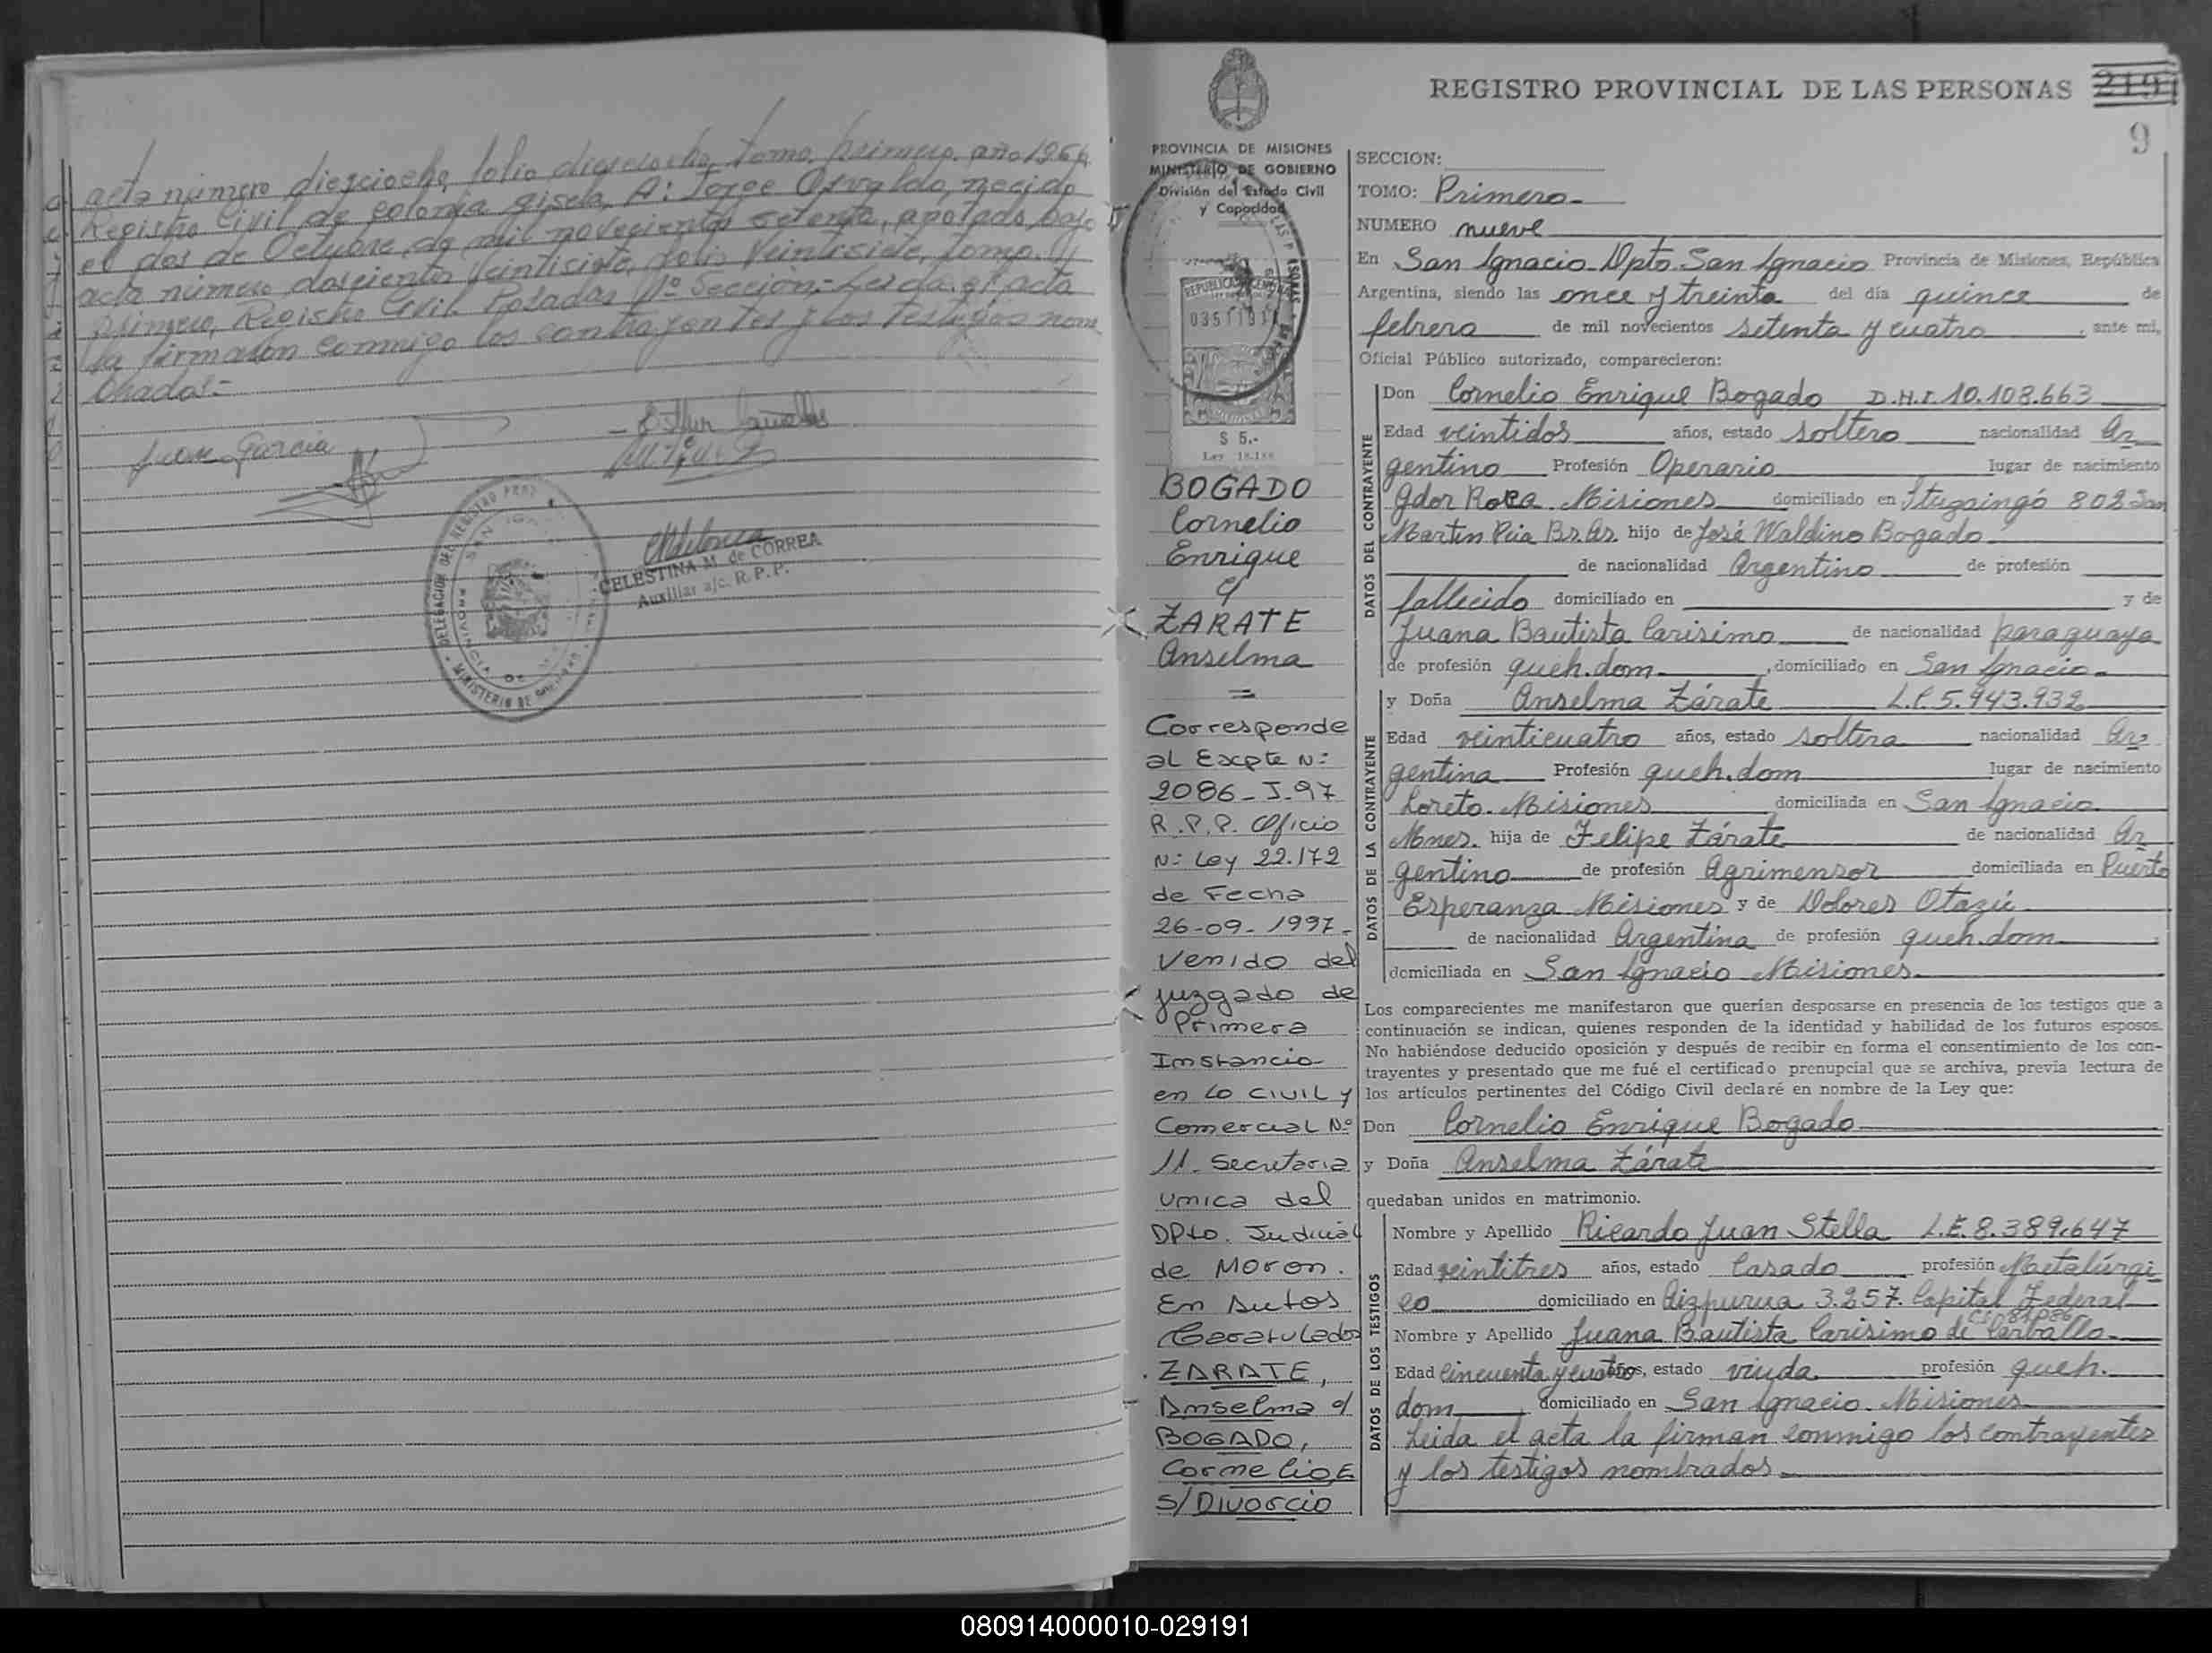 acta número dieziocho, folio dieziocho, tomo primero año 1964.
Registro Civil de colonia Gisela, A: Jorge Osvaldo, nacido
el dos de Octubre de mil novecientos setenta, anotado bajo
acta número doscientos veintisiete, folio veintisiete, tomo
primero, Registro Civil Posadas 1º Sección.- Leida el acta
la firmaron conmigo los contrayentes y los testigos nom
brados:-
Juan Garcia
CELESTINA M. de CORREA
Auxiliar a/c. R. P. P.
DELEGACION DEL REGISTRO
MINISTERIO DE
PROVINCIA DE
REGISTRO PROVINCIAL DE LAS PERSONAS 219
9
PROVINCIA DE MISIONES
MINISTERIO DE GOBIERNO
División del Estado Civil
y Capacidad
REPUBLICA ARGENTINA
$ 5.-
Ley 18.188
BOGADO
Cornelio
Enrique
y
ZARATE
Anselma
=
Corresponde
al Expte N:
2086-I-97
R.P.P. Oficio
N: Ley 22.172
de Fecha
26-09-1997-
Venido del
juzgado de
Primera
Instancia
en Lo Civil y
Comercial Nº
11- Secretaria
Unica del
DPto. Judicial
de Moron.
En Autos
Caratulados
ZARATE,
Anselma c/
BOGADO,
Cornelio E.
S/Divorcio
SECCION:
TOMO: Primero-
NUMERO nueve
En San Ignacio-Dpto. San Ignacio Provincia de Misiones, República
Argentina, siendo las once y treinta del día quince de
febrero de mil novecientos setenta y cuatro, ante mi,
Oficial Público autorizado, comparecieron:
DATOS DEL CONTRAYENTE
Don Cornelio Enrique Bogado D.N.I. 10.108.663
Edad veintidos años, estado soltero nacionalidad Ar
gentino Profesión Operario lugar de nacimiento
Gdor Roca. Misiones domiciliado en Ituzaingó 802 San
Martin Pcia Bs.As. hijo de José Waldino Bogado
de nacionalidad Argentino de profesión
fallecido domiciliado en y de
Juana Bautista Carisimo de nacionalidad paraguaya
de profesión queh.dom. , domiciliado en San Ignacio-
DATOS DE LA CONTRAYENTE
y Doña Anselma Zárate L.C. 5.943.932
Edad veinticuatro años, estado soltera nacionalidad Ar
gentina Profesión queh.dom lugar de nacimiento
Loreto-Misiones domiciliada en San Ignacio
Mnes. hija de Felipe Zárate de nacionalidad Ar
gentino de profesión Agrimensor domiciliada en Puerto
Esperanza Misiones y de Dolores Otazú
de nacionalidad Argentina de profesión queh.dom. ,
domiciliada en San Ignacio-Misiones.
Los comparecientes me manifestaron que querían desposarse en presencia de los testigos que a
continuación se indican, quienes responden de la identidad y habilidad de los futuros esposos.
No habiéndose deducido oposición y después de recibir en forma el consentimiento de los con-
trayentes y presentado que me fué el certificado prenupcial que se archiva, previa lectura de
los artículos pertinentes del Código Civil declaré en nombre de la Ley que:
Don Cornelio Enrique Bogado
y Doña Anselma Zárate
quedaban unidos en matrimonio.
DATOS DE LOS TESTIGOS
Nombre y Apellido Ricardo Juan Stella L.E. 8.389.647
Edad veintitres años, estado Casado profesión Metalúrgi
co domiciliado en Aizpurua 3.257. Capital Federal
Nombre y Apellido Juana Bautista Carisimo de Carballo-
Edad cincuenta y cuatro años, estado viuda profesión queh.
dom , domiciliado en San Ignacio-Misiones
Leida el acta la firman conmigo los contrayentes
y los testigos nombrados
080914000010-029191